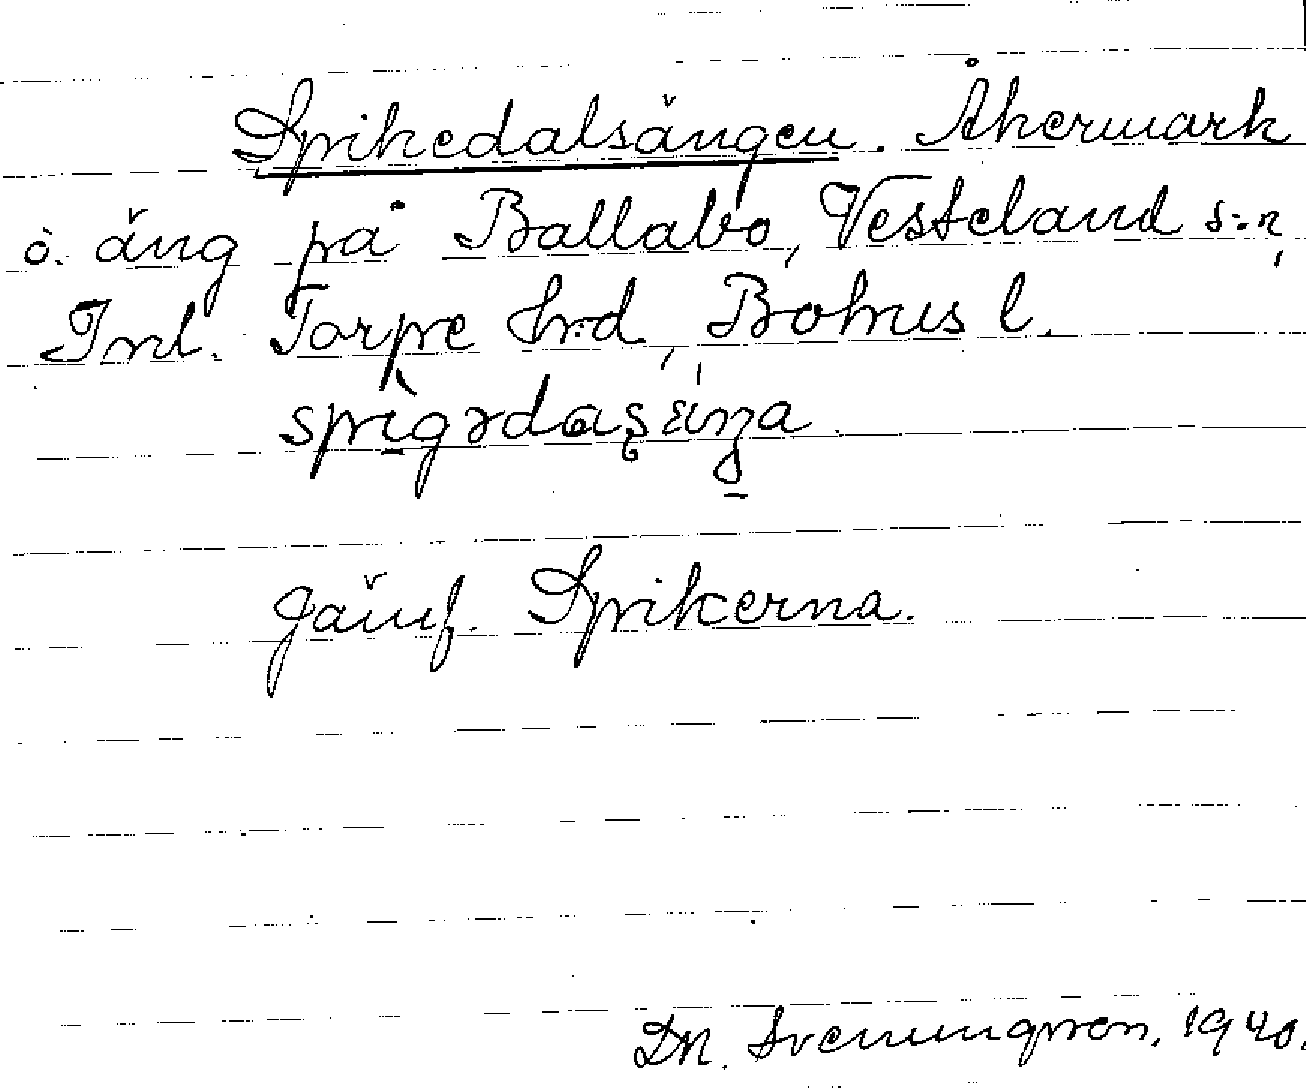 Spikedalsängen. Åkermark
o. äng på Ballabo, Vesteland s:n,
Inl. Torpe hrd, Bohus l.
Jämf. Spikerna.
Dn. Svenungsson, 1940.